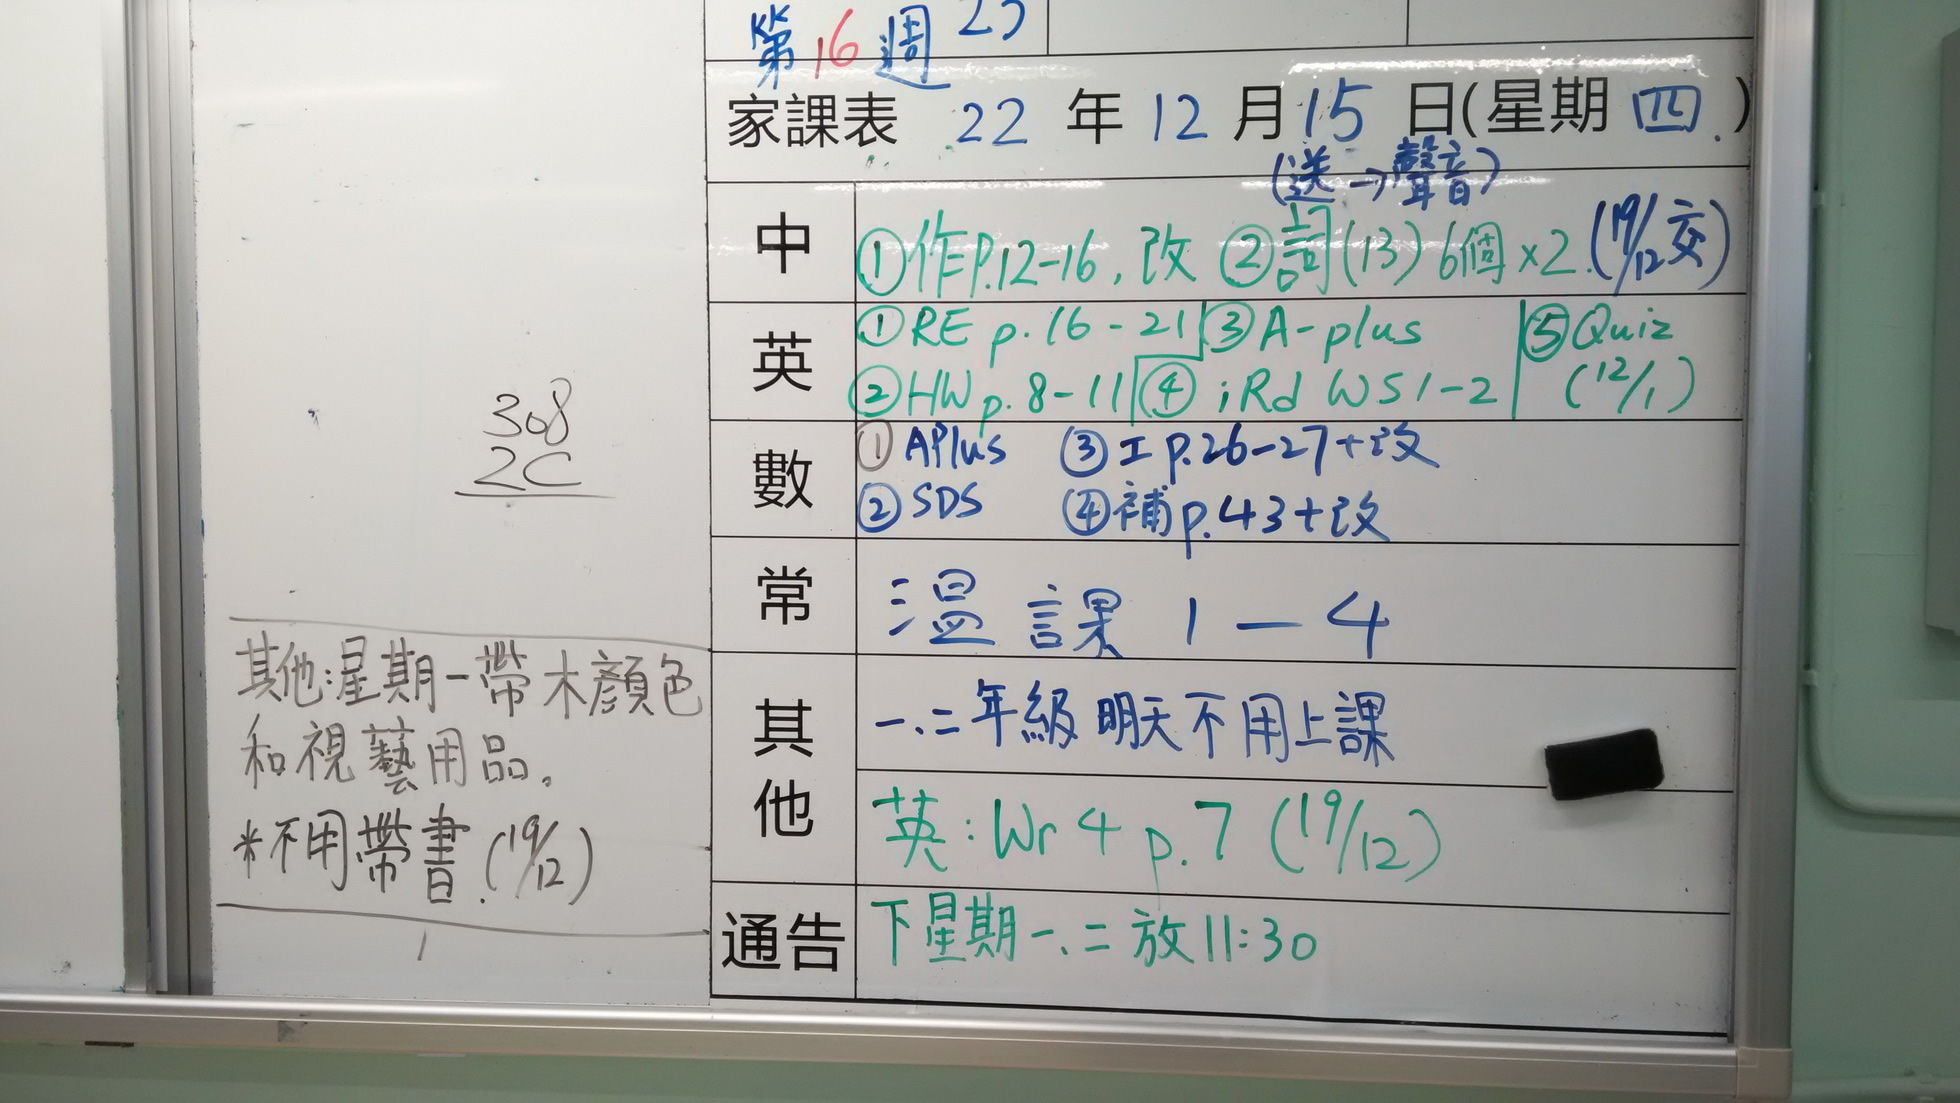 第16週
家課表 22年12月15日(星期四)
(送→聲音)
中 ①作P.12-16,改 ②詞(13)6個×2.(19/12交)
英 ①RE p.16-21 ③A-plus ⑤Quiz
②HW p.8-11 ④iRd WS1-2 (12/1)
數 ①APlus ③工p.26-27+改
②SDS ④補p.43+改
常 溫課1-4
其他 一.二年級明天不用上課
英:Wr 4 p.7 (19/12)
通告 下星期一.二放11:30
308
2C
其他:星期一帶木顏色
和視藝用品。
*不用帶書.(19/12)